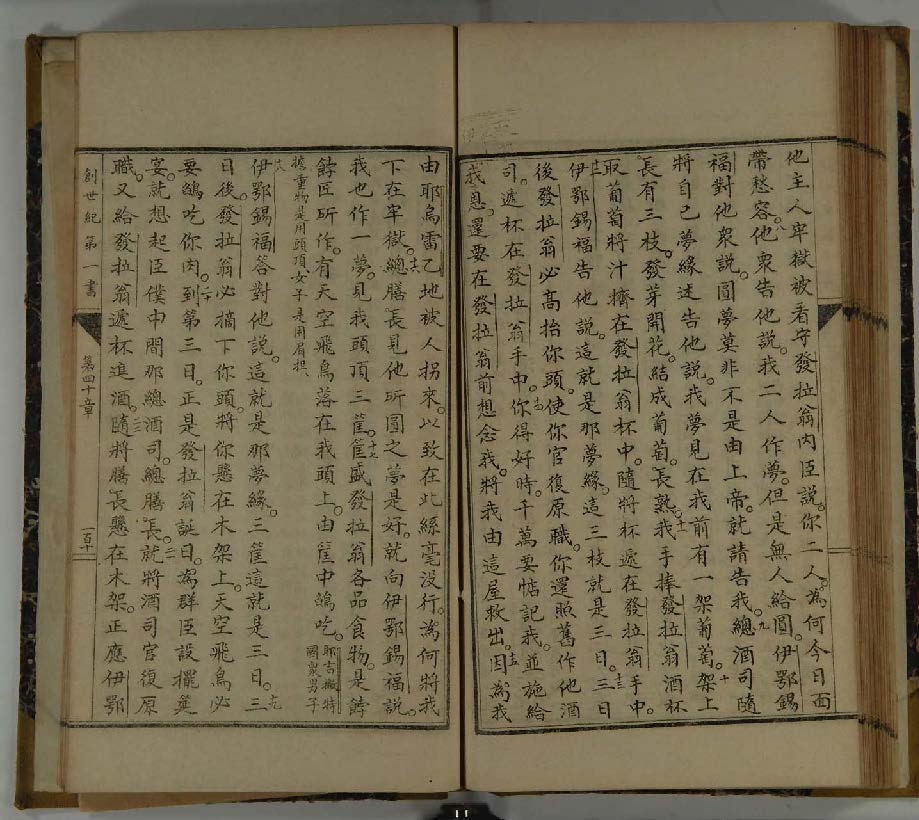 他主人牢獄被看守發拉翁內臣說。你二人。為何今日面
帶愁容。八他衆告他說。我二人作夢。但是無人給圓。伊鄂錫
福對他衆說。圓夢莫非不是由上帝。就請告我。九總酒司隨
將自己夢緣述告他說。我夢見在我前有一架葡萄。十架上
長有三枝。發芽開花。結成葡萄。長熟。十一我手捧發拉翁酒杯
取葡萄將汁擠在發拉翁杯中。隨將杯遞在發拉翁手中。
十二伊鄂錫福告他說。這就是那夢緣。這三枝就是三日。十三三日
後發拉翁必高抬你頭。使你官復原職。你還照舊作他酒
司。遞杯在發拉翁手中。十四你得好時。千萬要惦記我。並施給
我恩。還要在發拉翁前想念我。將我由這屋救出。十五因為我
由耶烏雷乙地被人拐來。以致在此絲毫沒行。為何將我
下在牢獄。十六總膳長見他所圓之夢是好。就向伊鄂錫福說。
我也作一夢。見我頭頂三筐。十七筐盛發拉翁各品食物。是餑
餑匠所作。有天空飛鳥落在我頭上。由筐中鵮吃。耶吉撇特國衆男子
擔重物是用頭頂女子是用肩揹
十八伊鄂錫福答對他說。這就是那夢緣。三筐這就是三日。十九三
日後。發拉翁必摘下你頭。將你懸在木架上。天空飛鳥必
要鵮吃你肉。二十到第三日。正是發拉翁誕日。為群臣設擺筵
宴。就想起臣僕中間那總酒司。總膳長。二一就將酒司官復原
職。又給發拉翁遞杯進酒。二二隨將膳長懸在木架。正應伊鄂
創世紀第一書
第四十章
一百十